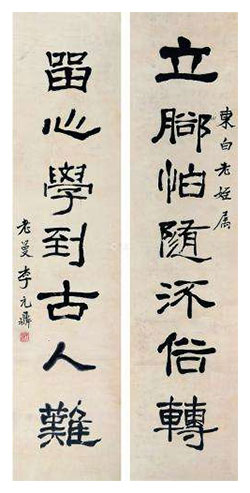 東白老姪屬
立腳怕隨流俗轉
留心學到古人難
老曼李元鼎